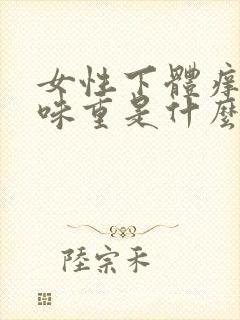 女性下體痒
味重是什麼
陸宗禾